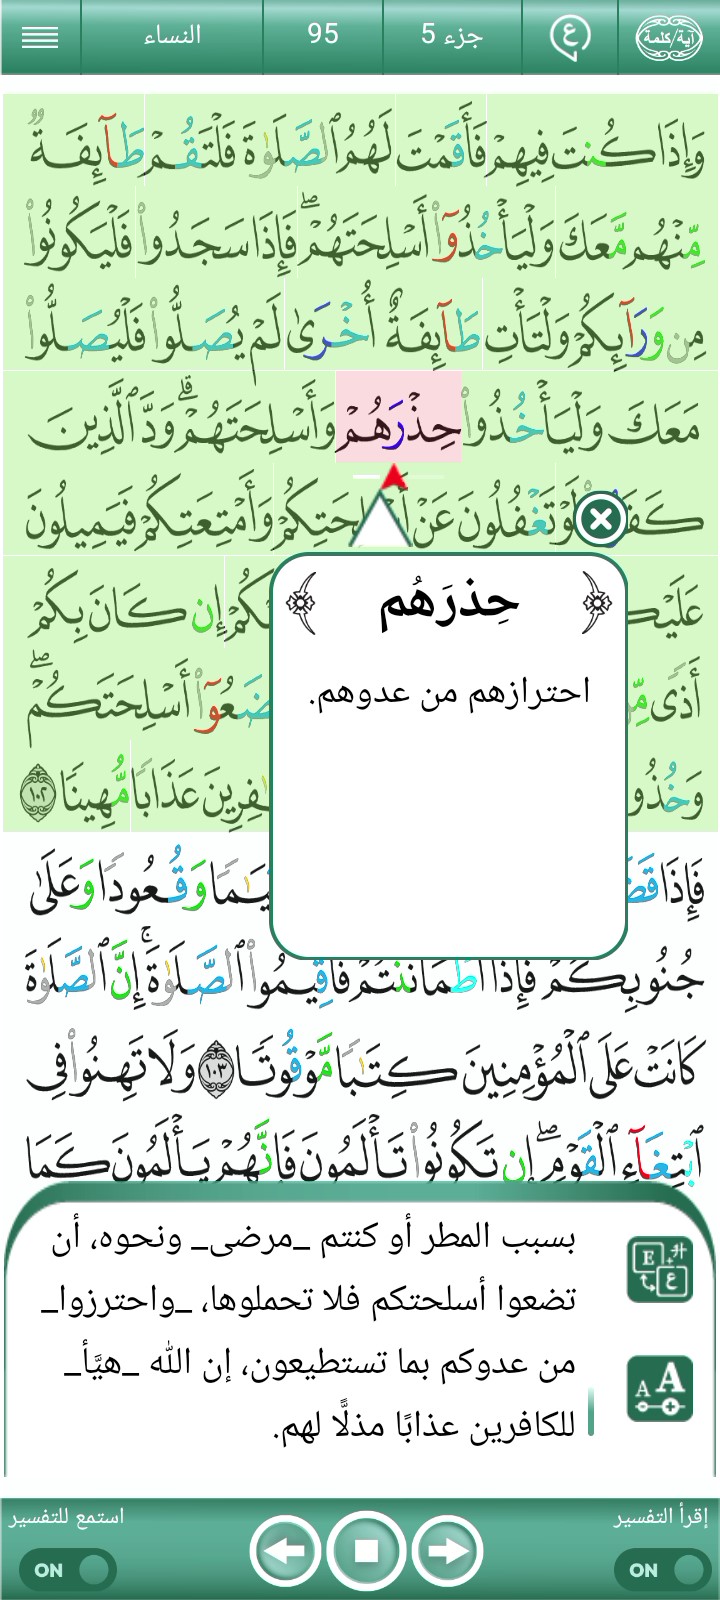 آية/كلمة ع جزء 5 95 النساء
وَإِذَا كُنتَ فِيهِمْ فَأَقَمْتَ لَهُمُ ٱلصَّلَوٰةَ فَلْتَقُمْ طَآئِفَةٌ
مِّنْهُم مَّعَكَ وَلْيَأْخُذُوٓا۟ أَسْلِحَتَهُمْ ۖ فَإِذَا سَجَدُوا۟ فَلْيَكُونُوا۟
مِن وَرَآئِكُمْ وَلْتَأْتِ طَآئِفَةٌ أُخْرَىٰ لَمْ يُصَلُّوا۟ فَلْيُصَلُّوا۟
مَعَكَ وَلْيَأْخُذُوا۟ حِذْرَهُمْ وَأَسْلِحَتَهُمْ ۗ وَدَّ ٱلَّذِينَ
تَغْفُلُونَ عَنْ وَأَمْتِعَتِكُمْ فَيَمِيلُونَ
إِن كَانَ بِكُمْ
أَذًى أَسْلِحَتَكُمْ ۖ
عَذَابًا مُّهِينًا ١٠٢
حِذرَهُم
احترازهم من عدوهم.
فَإِذَا وَقُعُودًا وَعَلَىٰ
جُنُوبِكُمْ ۚ فَإِذَا ٱطْمَأْنَنتُمْ فَأَقِيمُوا۟ ٱلصَّلَوٰةَ ۚ إِنَّ ٱلصَّلَوٰةَ
كَانَتْ عَلَى ٱلْمُؤْمِنِينَ كِتَـٰبًا مَّوْقُوتًا ١٠٣ وَلَا تَهِنُوا۟ فِى
ٱبْتِغَآءِ ٱلْقَوْمِ ۖ إِن تَكُونُوا۟ تَأْلَمُونَ فَإِنَّهُمْ يَأْلَمُونَ كَمَا
بسبب المطر أو كنتم _مرضى_ ونحوه، أن
تضعوا أسلحتكم فلا تحملوها، _واحترزوا_
من عدوكم بما تستطيعون، إن الله _هيَّأ_
للكافرين عذابًا مذلًّا لهم.
إقرأ التفسير استمع للتفسير
ON ON